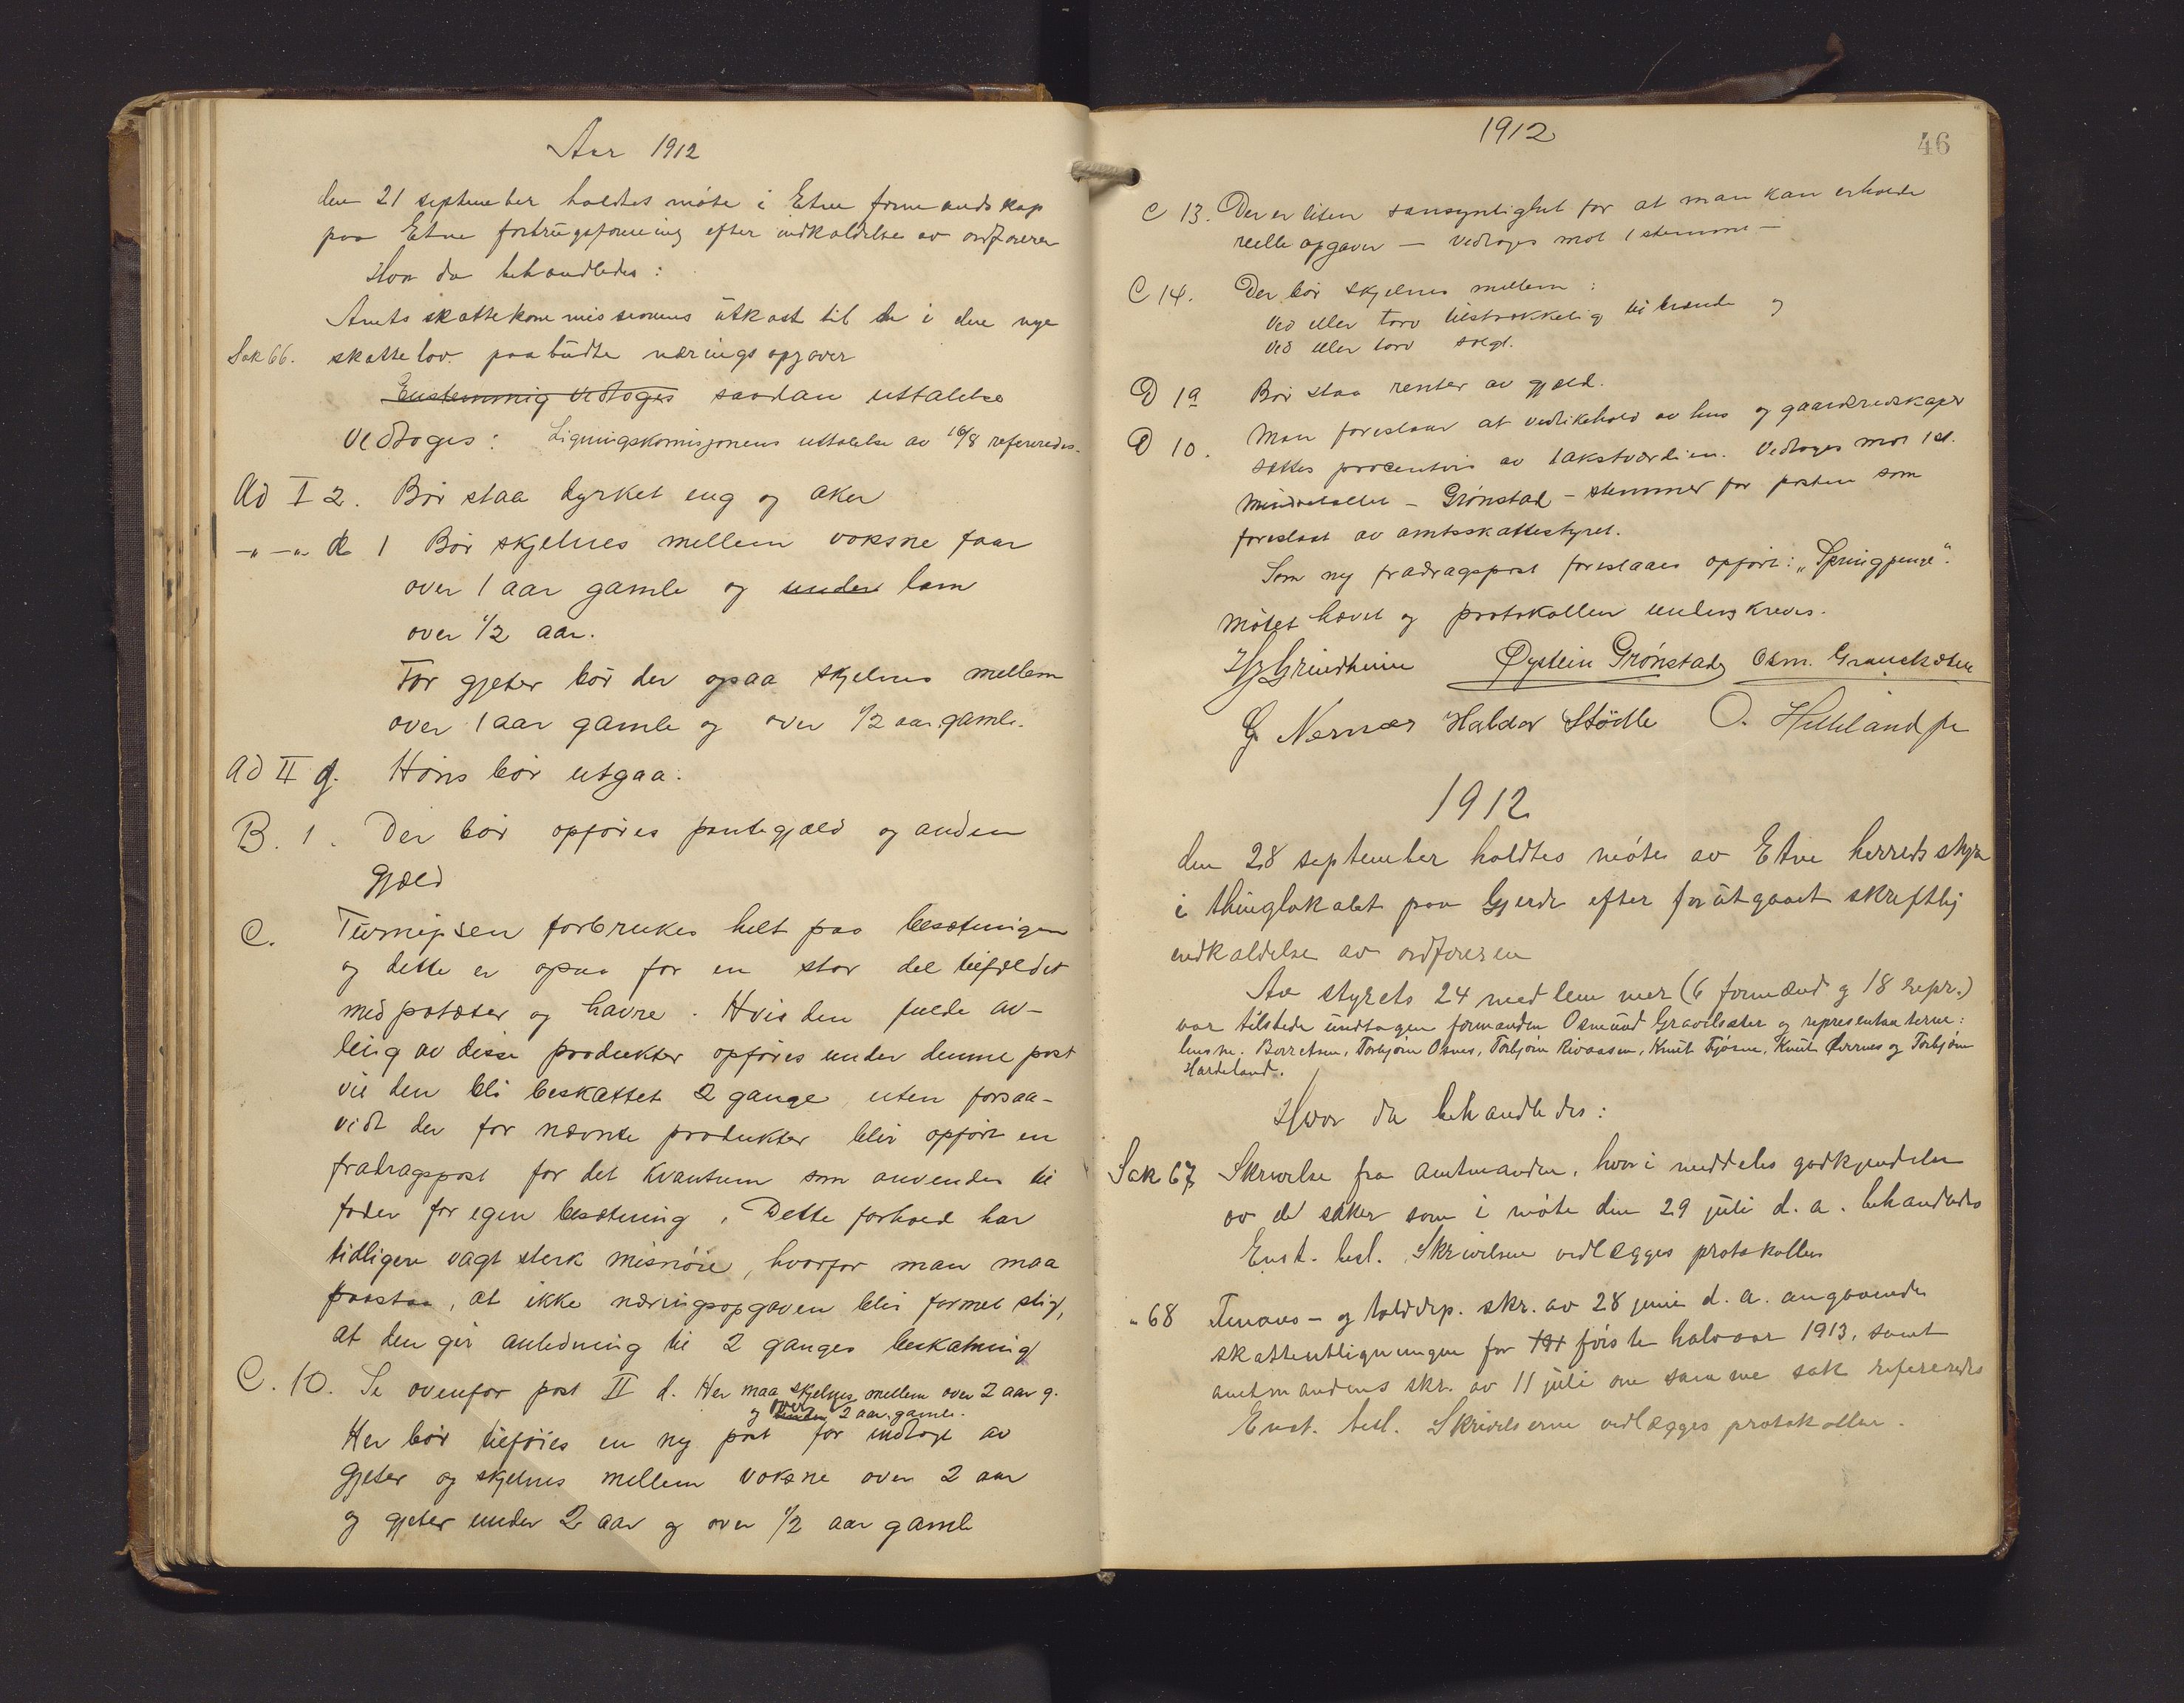 Aar 1912
den 21 september holdtes møte i Etne formandskap
paa Etne forbrugsforening efter indkaldelse av ordføreren
Hvor da behandledes:
Amts skattekommissionens utkast til de i den nye
Sak 66. skattelov paabudte næringsopgaver
Enstemmig vedtoges saadan uttalelse
Vedtoges: Ligningskomisjonens uttalelse av 16/8 refereredes.
Ad I 2. Bør staa dyrket eng og aker
-"-"- d 1 Bør skjelnes mellem voksne faar
over 1 aar gamle og under lam
over 1/2 aar.
For gjeter bør der ogsaa skjelnes mellem
over 1 aar gamle og over 1/2 aar gamle.
Ad II g. Høns bør utgaa.
B. 1. Der bør opføres pantegjæld og anden
gjæld
C. Turnipsen forbrukes helt paa besætningen
og dette er ogsaa for en stor del tilfældet
med poteter og havre. Hvis den fulde av-
ling av disse produkter opføres under denne post
vil den bli beskattet 2 gange, uten forsaa-
vidt der for nævnte produkter blir opført en
fradragspost for det kvantum som anvendes til
foder for egen besætning. Dette forhold har
tidligere vagt sterk misnøie, hvorfor man maa
paastaa, at ikke næringsopgaven blir formet slig,
at den gir anledning til 2 ganges beskatning
C. 10. Se ovenfor post II d. Her maa skjelnes mellem over 2 aar g.
og under over 2 aar gamle.
Her bør tilføies en ny post for indtægt av
gjeter og skjelnes mellem voksne over 2 aar
og gjeter under 2 aar og over 1/2 aar gamle
1912
46
C 13. Der er liten sansynlighet for at man kan erholde
reelle opgaver — Vedtoges mot 1 stemme —
C 14. Der bør skjelnes mellem:
Ved eller torv tilstrækkelig til brænde og
Ved eller torv solgt.
D 1a Bør staa renter av gjæld.
D 10. Man foreslaar at vedlikehold av hus og gaardsredskaper
sættes procentvis av takstværdien. Vedtoges mot 1 st.
Mindretallet – Grønstad – stemmer for posten som
foreslaat av amtsskattestyret.
Som ny fradragspost foreslaaes opført: „Springpenge".
Møtet hævet og protokollen underskreves.
Grindheim Øystein Grønstad Osm.
G. Nernæs Haldor Stødle O. Helleland
1912
den 28 september holdtes møte av Etne herredsstyre
i thinglokalet paa Gjerde efter forutgaaet skriftlig
indkaldelse av ordføreren
Av styrets 24 medlemmer (6 formænd og 18 repr.)
var tilstede undtagen formanden Osmund Gravelsæter og representanterne:
Berretsen, Torbjørn Osnes, Torbjørn Rivaasen, Knut Fjøsne, Knut og Torbjørn
Hardeland.
Hvor da behandledes:
Sak 67 Skrivelse fra amtmanden, hvori meddeles godkjendelse
av de saker som i møte den 29 juli d. a. behandledes
Enst. besl. Skrivelsen vedlægges protokollen
" 68 Finans- og tolddep. skr. av 28 juni d. a. angaaende
skatteutligningen for første halvaar 1913, samt
amtmandens skr. av 11 juli om samme sak refereredes
Enst. besl. Skrivelserne vedlægges protokollen.